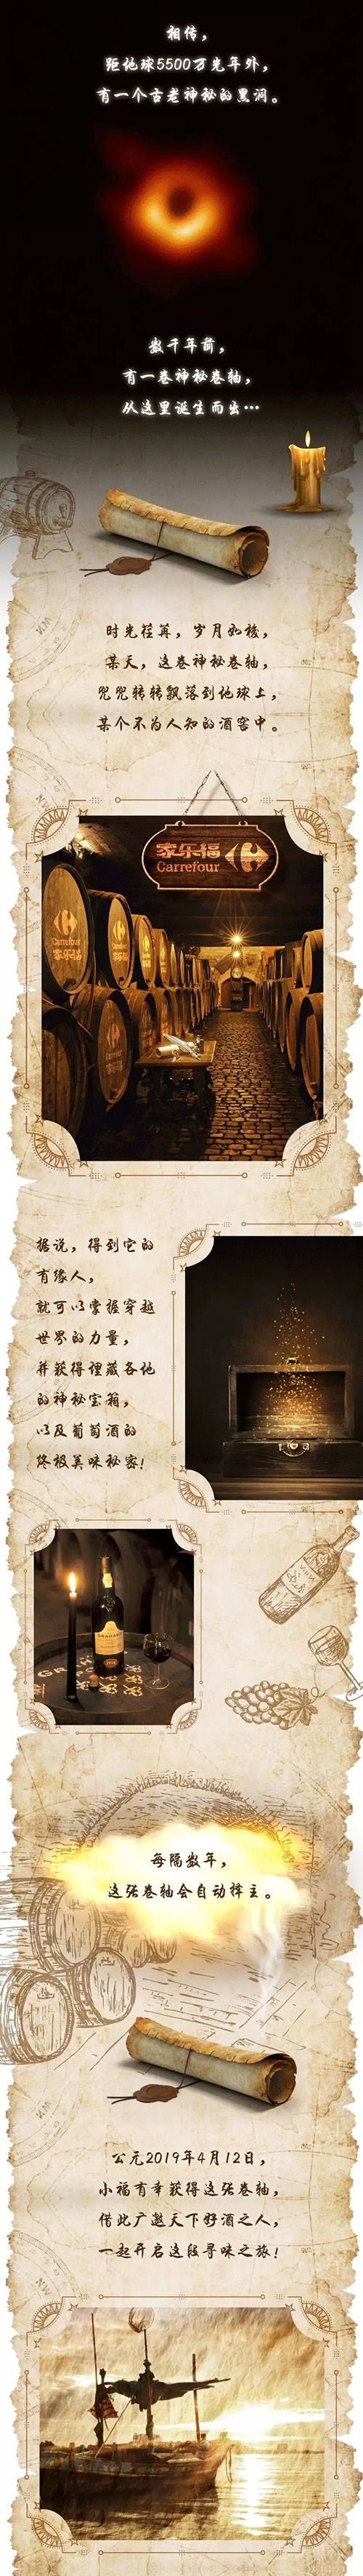 相传，
距地球5500万光年外，
有一个古老神秘的黑洞。
数千年前，
有一卷神秘卷轴，
从这里诞生而出…
时光荏苒，岁月如梭，
某天，这卷神秘卷轴，
兜兜转转飘落到地球上，
某个不为人知的酒窖中。
家乐福
Carrefour
Carrefour
家乐福
Carrefour
家乐福
据说，得到它的
有缘人，
就可以掌握穿越
世界的力量，
并获得埋藏各地
的神秘宝箱，
以及葡萄酒的
终极美味秘密！
GRAHAM'S
每隔数年，
这张卷轴会自动择主。
公元2019年4月12日，
小福有幸获得这张卷轴，
借此广邀天下好酒之人，
一起开启这段寻味之旅！